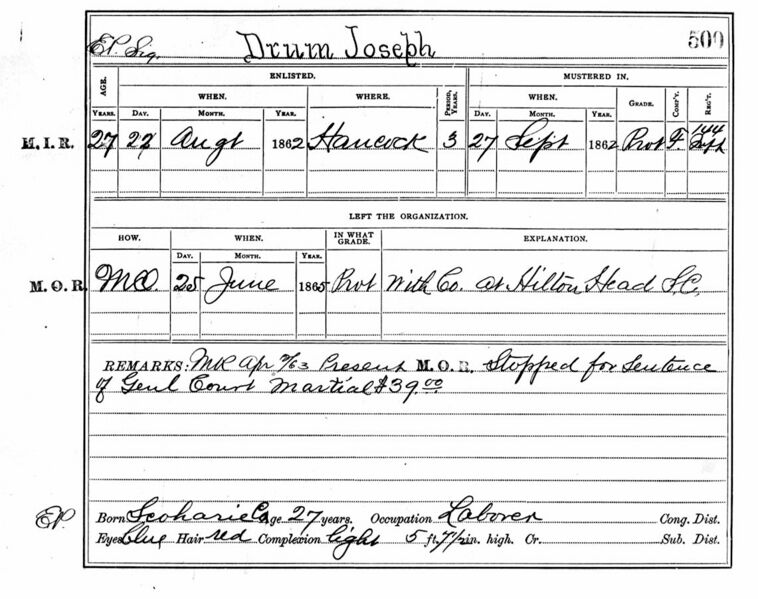 E.P. Sig. Drum Joseph 509
AGE. ENLISTED. MUSTERED IN.
WHEN. WHERE. PERIOD, YEARS. WHEN. GRADE. COMP'Y. REG'T.
YEARS. DAY. MONTH. YEAR. DAY. MONTH. YEAR.
M.I.R. 27 22 Augt 1862 Hancock 3 27 Sept 1862 Pvt F. 144 Inft
LEFT THE ORGANIZATION.
HOW. WHEN. IN WHAT GRADE. EXPLANATION.
DAY. MONTH. YEAR.
M.O.R. M.O. 25 June 1865 Pvt With Co. at Hilton Head S.C.
REMARKS: MR Apr /63 Present M.O.R. Stopped for Sentence
of Genl Court Martial $39.00
E.P. Born Scoharie Co Age 27 years. Occupation Laborer Cong. Dist.
Eyes blue Hair red Complexion light 5 ft. 7½ in. high. Cr. Sub. Dist.